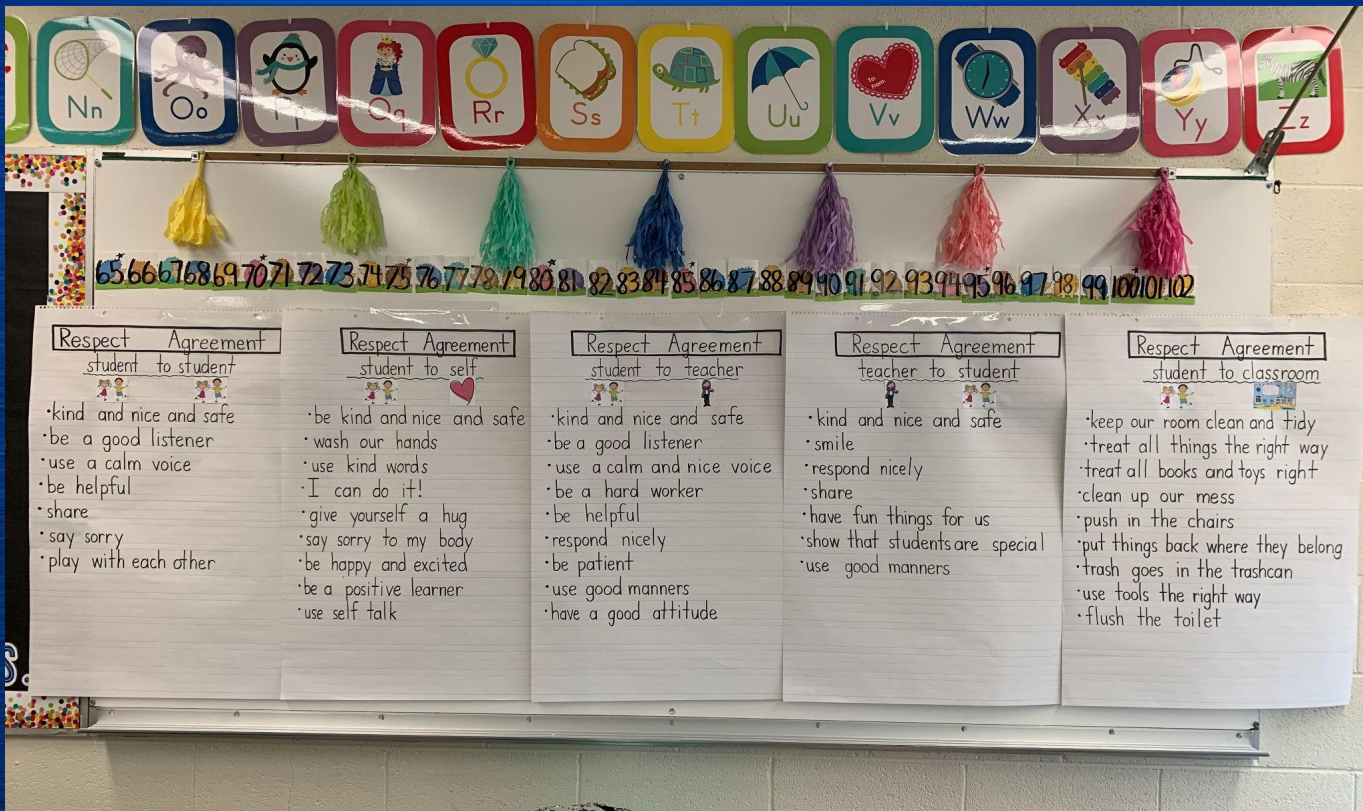 Nn
Oo
Pp
Qq
Rr
Ss
Tt
Uu
Vv
Ww
Xx
Yy
Zz
65 66 67 68 69 70 71 72 73 74 75 76 77 78 79 80 81 82 83 84 85 86 87 88 89 90 91 92 93 94 95 96 97 98 99 100 101 102
Respect Agreement
student to student
·kind and nice and safe
·be a good listener
·use a calm voice
·be helpful
·share
·say sorry
·play with each other
Respect Agreement
student to self
·be kind and nice and safe
·wash our hands
·use kind words
·I can do it!
·give yourself a hug
·say sorry to my body
·be happy and excited
·be a positive learner
·use self talk
Respect Agreement
student to teacher
·kind and nice and safe
·be a good listener
·use a calm and nice voice
·be a hard worker
·be helpful
·respond nicely
·be patient
·use good manners
·have a good attitude
Respect Agreement
teacher to student
·kind and nice and safe
·smile
·respond nicely
·share
·have fun things for us
·show that students are special
·use good manners
Respect Agreement
student to classroom
·keep our room clean and tidy
·treat all things the right way
·treat all books and toys right
·clean up our mess
·push in the chairs
·put things back where they belong
·trash goes in the trashcan
·use tools the right way
·flush the toilet